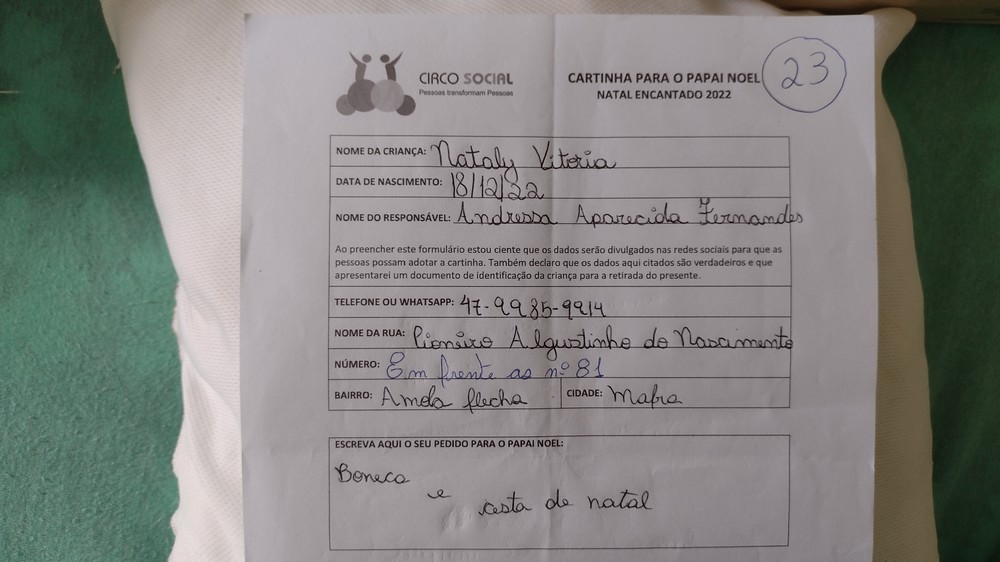 CIRCO SOCIAL
Pessoas transformam Pessoas
CARTINHA PARA O PAPAI NOEL
NATAL ENCANTADO 2022
23
NOME DA CRIANÇA: Nataly Vitoria
DATA DE NASCIMENTO: 18/12/22
NOME DO RESPONSÁVEL: Andressa Aparecida Fernandes
Ao preencher este formulário estou ciente que os dados serão divulgados nas redes sociais para que as
pessoas possam adotar a cartinha. Também declaro que os dados aqui citados são verdadeiros e que
apresentarei um documento de identificação da criança para a retirada do presente.
TELEFONE OU WHATSAPP: 47-9985-9914
NOME DA RUA: Pioneiro Algustinho do Nascimento
NÚMERO: Em frente as nº 81
BAIRRO: Amola flecha CIDADE: Mafra
ESCREVA AQUI O SEU PEDIDO PARA O PAPAI NOEL:
Boneca
e cesta de natal